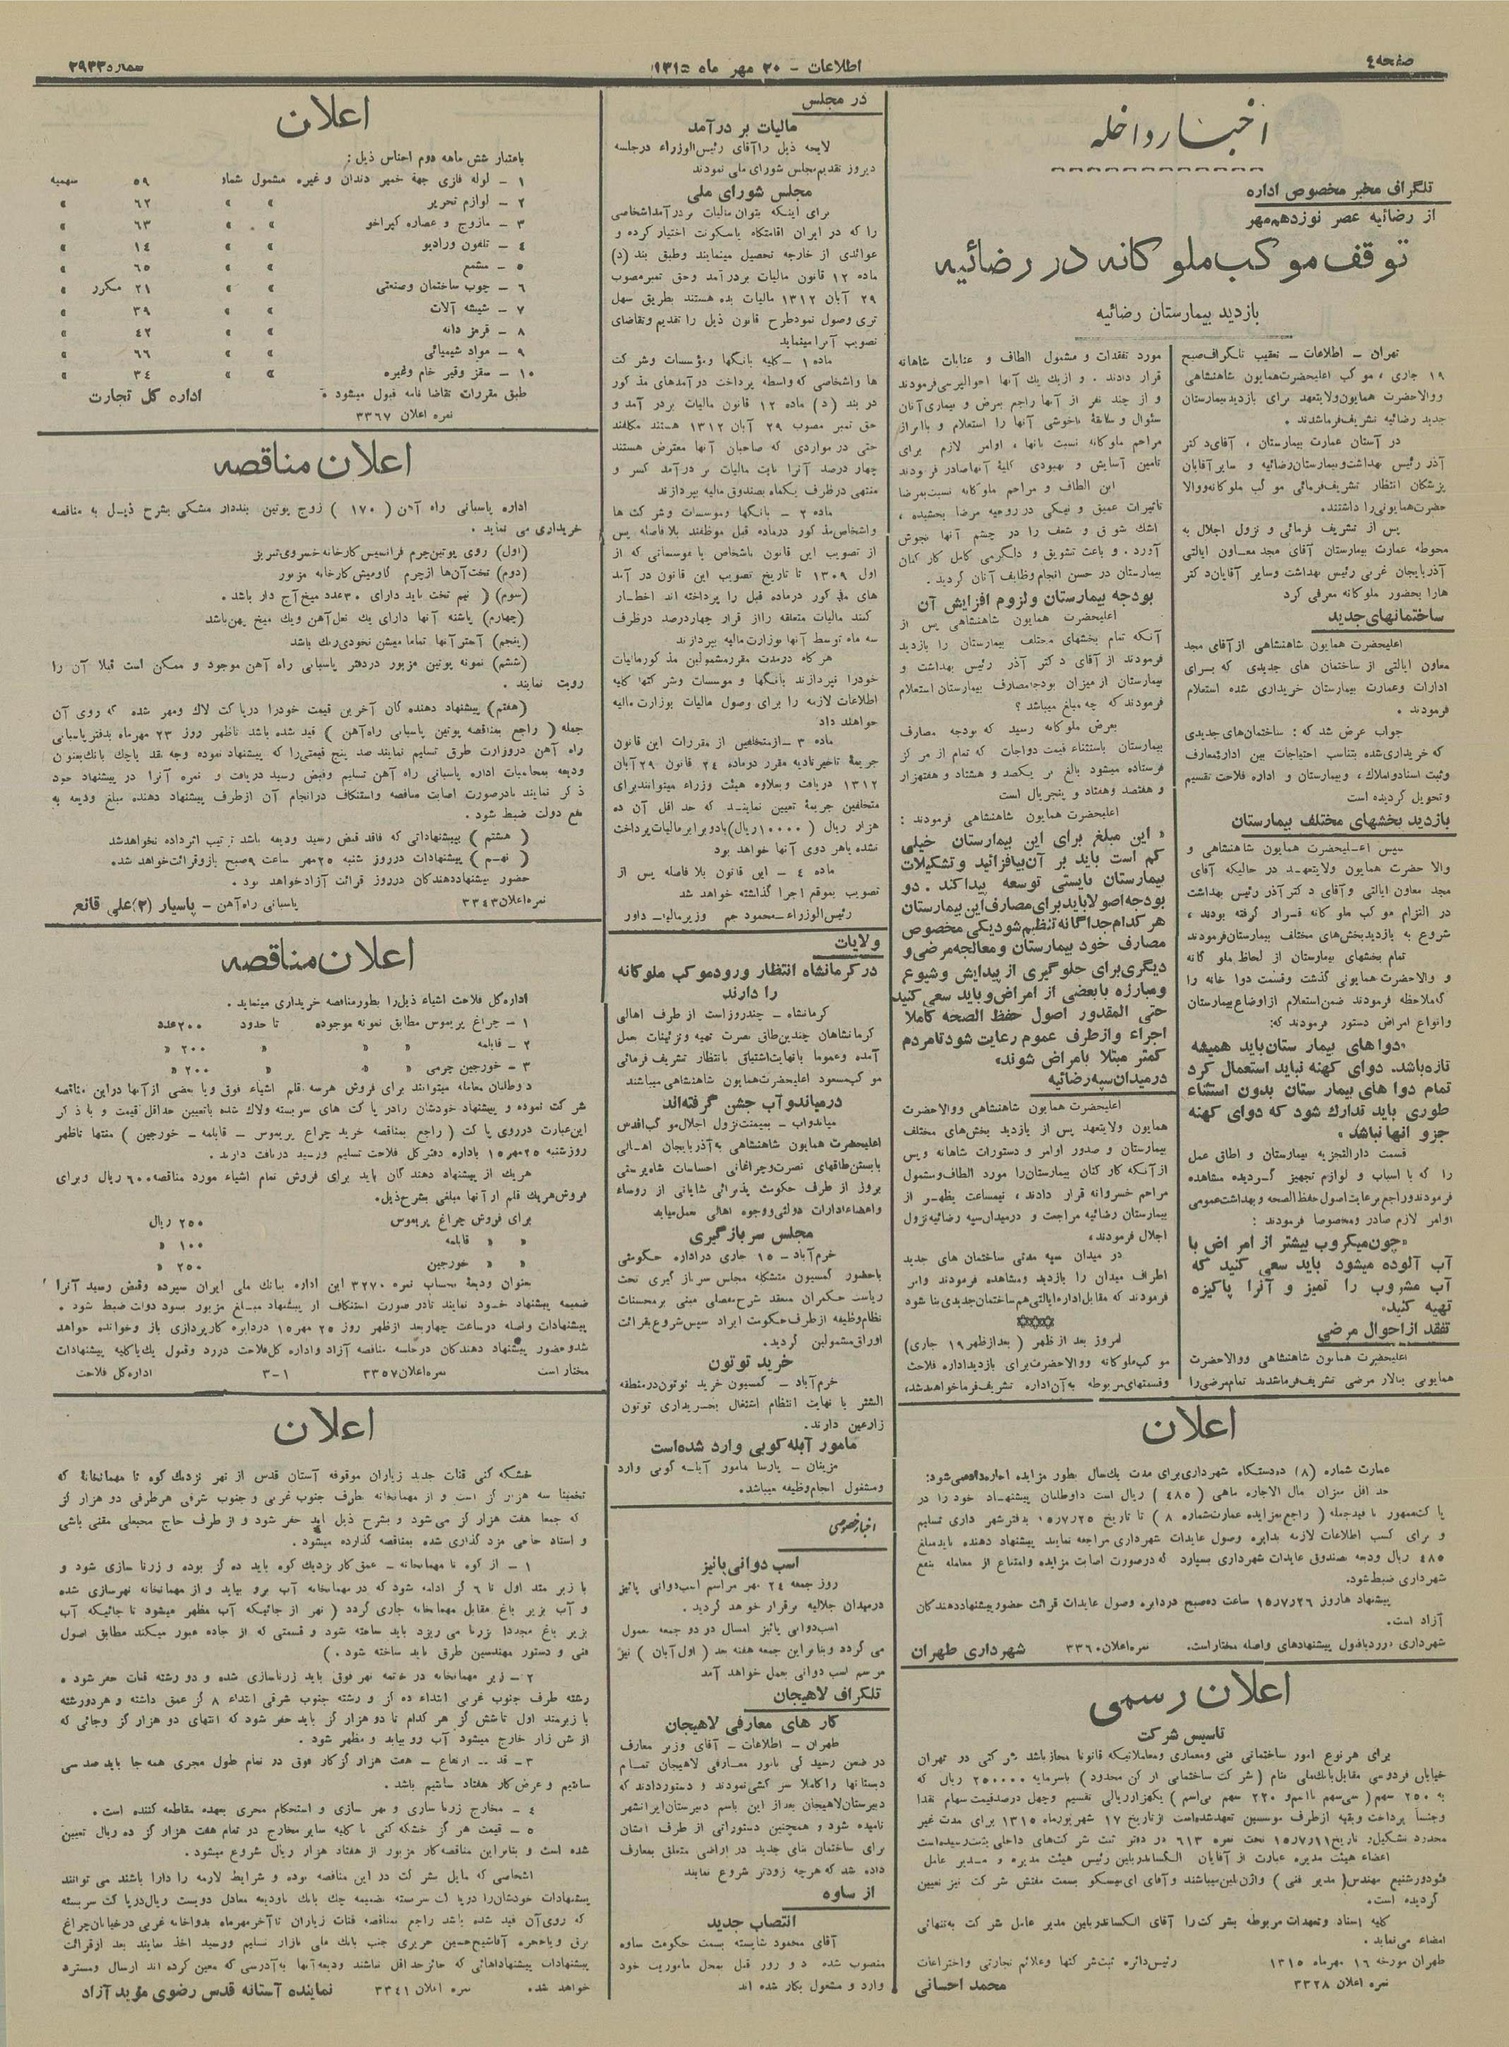 صفحه ٤
اطلاعات - ٢٠ مهر ماه ١٣١٥
شماره ٢٩٣٣
اخبار داخله
تلگراف مخبر مخصوص اداره
از رضائیه عصر نوزدهم مهر
توقف موکب ملوکانه در رضائیه
بازدید بیمارستان رضائیه
تهران - اطلاعات - تعقیب تلگراف صبح
١٩ جاری ، موکب اعلیحضرت همایون شاهنشاهی
ووالاحضرت همایون ولایتعهد برای بازدید بیمارستان
جدید رضائیه تشریف فرما شدند .
در آستان عمارت بیمارستان ، آقای دکتر
آذر رئیس بهداشت و بیمارستان رضائیه و سایر آقایان
پزشکان انتظار تشریف فرمائی موکب ملوکانه ووالا
حضرت همایونی را داشتند.
پس از تشریف فرمائی و نزول اجلال به
محوطه عمارت بیمارستان آقای مجد معاون ایالتی
آذربایجان غربی رئیس بهداشت وسایر آقایان دکتر
هارا بحضور ملوکانه معرفی کرد
ساختمانهای جدید
اعلیحضرت همایون شاهنشاهی از آقای مجد
معاون ایالتی از ساختمان های جدیدی که برای
ادارات وعمارت بیمارستان خریداری شده استعلام
فرمودند .
جواب عرض شد که : ساختمان‌های جدیدی
که خریداری شده بتناسب احتیاجات بین اداره معارف
وثبت اسناد و املاك ، وبیمارستان و اداره فلاحت تقسیم
وتحویل گردیده است
بازدید بخشهای مختلف بیمارستان
سپس اعلیحضرت همایون شاهنشاهی و
والا حضرت همایون ولایتعهد در حالیکه آقای
مجد معاون ایالتی وآقای دکتر آذر رئیس بهداشت
در التزام موکب ملوکانه قرار گرفته بودند ،
شروع به بازدید بخش‌های مختلف بیمارستان فرمودند
تمام بخشهای بیمارستان از لحاظ ملوکانه
و والاحضرت همایونی گذشت وقسمت دوا خانه را
که ملاحظه فرمودند ضمن استعلام از اوضاع بیمارستان
وانواع امراض دستور فرمودند که:
«دواهای بیمارستان باید همیشه
تازه باشد. دوای کهنه نباید استعمال کرد
تمام دواهای بیمارستان بدون استثناء
طوری باید تدارك شود که دوای کهنه
جزو آنها نباشد.»
قسمت دارالتجزیه بیمارستان و اطاق عمل
را که با اسباب و لوازم تجهیز گردیده مشاهده
فرمودند و راجع برعایت اصول حفظ الصحه و بهداشت عمومی
اوامر لازم صادر ومخصوصا فرمودند :
«چون میکروب بیشتر از امراض با
آب آلوده میشود باید سعی کنید که
آب مشروب را تمیز و آنرا پاکیزه
تهیه کنید»
تفقد از احوال مرضی
اعلیحضرت همایون شاهنشاهی ووالاحضرت
همایونی بتالار مرضی تشریف فرما شدند تمام مرضی را
مورد تفقدات و مشمول الطاف و عنایات شاهانه
قرار دادند . و از یک یک آنها احوالپرسی فرمودند
و از چند نفر از آنها راجع بمرض و بیماری آنان
سئوال و سابقه ناخوشی آنها را استعلام و با ابراز
مراحم ملوکانه نسبت بآنها ، اوامر لازم برای
تامین آسایش و بهبودی کلیه آنها صادر فرمودند
این الطاف و مراحم ملوکانه نسبت بمرضا
تاثیرات عمیق و نیکی در روحیه مرضا بخشیده ،
اشك شوق و شعف را در چشم آنها بجوش
آورد . و باعث تشویق و دلگرمی کامل کارکنان
بیمارستان در حسن انجام وظایف آنان گردید.
بودجه بیمارستان ولزوم افزایش آن
اعلیحضرت همایون شاهنشاهی پس از
آنکه تمام بخشهای مختلف بیمارستان را بازدید
فرمودند از آقای دکتر آذر رئیس بهداشت و
بیمارستان از میزان بودجه مصارف بیمارستان استعلام
فرمودند که چه مبلغ میباشد ؟
بعرض ملوکانه رسید که بودجه مصارف
بیمارستان باستثناء قیمت دواجات که تمام از مرکز
فرستاده میشود بالغ بر یکصد و هشتاد و هفتهزار
و هفتصد وهفتاد و پنجریال است
اعلیحضرت همایون شاهنشاهی فرمودند :
«این مبلغ برای این بیمارستان خیلی
کم است باید بر آن بیافزائید و تشکیلات
بیمارستان بایستی توسعه پیدا کند. دو
بودجه اصولا باید برای مصارف این بیمارستان
هر کدام جداگانه تنظیم شود یکی مخصوص
مصارف خود بیمارستان ومعالجه مرضی و
دیگری برای جلوگیری از پیدایش و شیوع
ومبارزه با بعضی از امراض و باید سعی کنید
حتی المقدور اصول حفظ الصحه کاملا
اجراء وازطرف عموم رعایت شود تا مردم
کمتر مبتلا بامراض شوند»
در میدان سپه رضائیه
اعلیحضرت همایون شاهنشاهی ووالاحضرت
همایون ولایتعهد پس از بازدید بخش‌های مختلف
بیمارستان و صدور اوامر و دستورات شاهانه وپس
از آنکه کارکنان بیمارستان را مورد الطاف ومشمول
مراحم خسروانه قرار دادند ، نیمساعت بظهر از
بیمارستان رضائیه مراجعت و درمیدان سپه رضائیه نزول
اجلال فرمودند،
در میدان سپه مدتی ساختمان های جدید
اطراف میدان را بازدید ومشاهده فرمودند وامر
فرمودند که مقابل اداره ایالتی هم ساختمان جدیدی بنا شود
امروز بعد از ظهر ( بعد از ظهر ١٩ جاری)
موکب ملوکانه ووالاحضرت برای بازدید اداره فلاحت
وقسمتهای مربوطه به آن اداره تشریف فرما خواهند شد،
اعلان
عمارت شماره (٨) ده دستگاه شهرداری برای مدت یکسال بطور مزایده اجاره داده میشود:
حد اقل میزان مال الاجاره ماهی (٤٨٥) ریال است داوطلبان پیشنهاد خود را در
پاکت ممهور با قید جمله ( راجع بمزایده عمارت شماره ٨ ) تا تاریخ ١٥/٧/٢٥ بدفتر شهرداری تسلیم
و برای کسب اطلاعات لازمه بدایره وصول عایدات شهرداری مراجعه نمایند پیشنهاد دهنده باید مبلغ
٤٨٥ ریال ودیعه بصندوق عایدات شهرداری بسپارد که درصورت اصابت مزایده وامتناع از معامله بنفع
شهرداری ضبط شود.
پیشنهادها روز ١٥/٧/٢٦ ساعت ده صبح در دایره وصول عایدات قرائت حضور پیشنهاد دهندگان
آزاد است.
شهرداری در رد یا قبول پیشنهادهای واصله مختار است. نمره اعلان ٣٣٦٠ شهرداری طهران
اعلان رسمی
تاسیس شرکت
برای هر نوع امور ساختمانی فنی ومعماری ومعاملاتیکه قانونا مجاز باشد شرکتی در تهران
خیابان فردوسی مقابل بانك ملی بنام (شرکت ساختمانی ارکن محدود) باسرمایه ٢٥٠٠٠٠ ریال که
به ٢٥٠ سهم (سی سهم با اسم و ٢٢٠ سهم بی اسم) یکهزار ریالی تقسیم وچهل درصد قیمت سهام نقدا
وجنساً پرداخت وبقیه از طرف موسسین تعهد شده است از تاریخ ١٧ شهریور ماه ١٣١٥ برای مدت غیر
محدود تشکیل و بتاریخ ١٥/٧/١١ تحت نمره ٦١٣ در دفتر ثبت شرکت‌های داخلی بثبت رسیده است
اعضاء هیئت مدیره عبارت از آقایان الکساندر باین رئیس هیئت مدیره و مدیر عامل
مهندس (مدیر فنی) میباشند وآقای بسمت مفتش شرکت نیز تعیین
گردیده است.
کلیه اسناد وتعهدات مربوطه بشرکت را آقای الکساندر باین مدیر عامل شرکت به تنهائی
امضاء می‌نماید .
طهران مورخه ١٦ مهرماه ١٣١٥ رئیس دائره ثبت شرکتها وعلائم تجارتی واختراعات
نمره اعلان ٣٣٢٨ محمد احسانی
در مجلس
مالیات بر درآمد
لایحه ذیل را آقای رئیس الوزراء در جلسه
دیروز تقدیم مجلس شورای ملی نمودند
مجلس شورای ملی
برای اینکه بتوان مالیات بر درآمد اشخاصی
را که در ایران اقامتگاه یا سکونت اختیار کرده و
عوائدی از خارجه تحصیل مینمایند وطبق بند (د)
ماده ١٢ قانون مالیات بر درآمد وحق تمبر مصوب
٢٩ آبان ١٣١٢ مالیات بده هستند بطریق سهل
تری وصول نمود طرح قانون ذیل را تقدیم وتقاضای
تصویب آنرا مینماید
ماده ١ - کلیه بانگها ومؤسسات وشرکت
ها واشخاصی که واسطه پرداخت درآمدهای مذکور
در بند (د) ماده ١٢ قانون مالیات بر درآمد و
حق تمبر مصوب ٢٩ آبان ١٣١٢ هستند مکلفند
حتی در مواردی که صاحبان آنها معترض هستند
چهار درصد آنرا بابت مالیات بر درآمد کسر و
منتهی در ظرف یکماه بصندوق مالیه بپردازند
ماده ٢ - بانگها وموسسات وشرکت ها
واشخاص مذکور درماده قبل موظفند بلافاصله پس
از تصویب این قانون باشخاص یا موسساتی که از
اول ١٣٠٩ تا تاریخ تصویب این قانون درآمد
های مذکور درماده قبل را پرداخته اند اخطار
کنند مالیات متعلقه را از قرار چهار درصد در ظرف
سه ماه توسط آنها بوزارت مالیه بپردازند
هرگاه درمدت مقرر مشمولین مذکور مالیات
خودرا نپردازند بانگها و موسسات وشرکتها کلیه
اطلاعات لازمه را برای وصول مالیات بوزارت مالیه
خواهند داد
ماده ٣ - از متخلفین از مقررات این قانون
جریمه تاخیر تادیه مقرر در ماده ٢٤ قانون ٢٩ آبان
١٣١٢ دریافت و بعلاوه هیئت وزراء میتوانند برای
متخلفین جریمه تعیین نمایند که حد اقل آن ده
هزار ریال (١٠٠٠٠ ریال) یا دو برابر مالیات پرداخت
نشده یا هر دوی آنها خواهد بود
ماده ٤ - این قانون بلا فاصله پس از
تصویب بموقع اجرا گذاشته خواهد شد
رئیس الوزراء - محمود جم وزیر مالیه - داور
ولایات
در کرمانشاه انتظار ورود موکب ملوکانه
را دارند
کرمانشاه - چند روز است از طرف اهالی
کرمانشاهان چندین طاق نصرت تهیه وتزئینات بعمل
آمده وعموما با نهایت اشتیاق بانتظار تشریف فرمائی
موکب مسعود اعلیحضرت همایون شاهنشاهی میباشند
در میاندوآب جشن گرفته‌اند
میاندواب - بمیمنت نزول اجلال موکب اقدس
اعلیحضرت همایون شاهنشاهی به آذربایجان اهالی
با بستن طاقهای نصرت وچراغانی احساسات شاه پرستی
بروز از طرف حکومت پذیرائی شایانی از روساء
واعضاء ادارات دولتی ووجوه اهالی بعمل میاید
مجلس سربازگیری
خرم آباد - ١٥ جاری در اداره حکومتی
باحضور کمسیون متشکله مجلس سربازگیری تحت
ریاست حکمران منعقد شرح مفصلی مبنی بر محسنات
نظام وظیفه از طرف حکومت ایراد سپس شروع بقرائت
اوراق مشمولین گردید.
خرید توتون
خرم آباد - کمسیون خرید توتون در منطقه
الشتر با نهایت انتظام اشتغال بخریداری توتون
زارعین دارند.
مامور آبله کوبی وارد شده است
مزینان - پارسا مامور آبله کوبی وارد
ومشغول انجام وظیفه میباشد.
اخبار خصوصی
اسب دوانی پائیز
روز جمعه ٢٤ مهر مراسم اسب دوانی پائیز
در میدان جلالیه برقرار خواهد گردید.
اسب دوانی پائیز امسال در دو جمعه معمول
می گردد وبنابراین جمعه هفته بعد (اول آبان) نیز
مرسم اسب دوانی بعمل خواهد آمد
تلگراف لاهیجان
کار های معارفی لاهیجان
طهران - اطلاعات - آقای وزیر معارف
در ضمن رسیدگی بامور معارفی لاهیجان تمام
دبستانها را کاملا سرکشی نمودند و دستور دادند که
دبیرستان لاهیجان بعد از این باسم دبیرستان ایرانشهر
نامیده شود و همچنین دستوراتی از طرف استان
برای ساختمان های جدید در اراضی متعلق بمعارف
داده شد که هرچه زودتر شروع نمایند
از ساوه
انتصاب جدید
آقای محمود شایسته بسمت حکومت ساوه
منصوب شده دو روز قبل بمحل ماموریت خود
وارد و مشغول بکار شده اند
اعلان
باعتبار شش ماهه دوم اجناس ذیل :
١ - لوله فلزی جهة خمیر دندان و غیره مشمول شماره ٥٩ سهمیه
٢ - لوازم تحریر » » ٦٢ »
٣ - مازوج و عصاره کبراخو » » ٦٣ »
٤ - تلفون ورادیو » » ١٤ »
٥ - مشمع » » ٦٥ »
٦ - چوب ساختمان وصنعتی » » ٢١ مکرر »
٧ - شیشه آلات » » ٣٩ »
٨ - قرمز دانه » » ٤٢ »
٩ - مواد شیمیائی » » ٦٦ »
١٠ - سقز وقیر خام وغیره » » ٣٤ »
طبق مقررات تقاضا نامه قبول میشود . اداره کل تجارت
نمره اعلان ٣٣٦٧
اعلان مناقصه
اداره پاسبانی راه آهن ( ١٧٠ ) زوج پوتین بنددار مشکی بشرح ذیل به مناقصه
خریداری می نماید .
(اول) روی پوتین چرم فرانسیس کارخانه خسروی تبریز
(دوم) تخت آن‌ها از چرم گاومیش کارخانه مزبور
(سوم) ( نیم تخت باید دارای ٣٠ عدد میخ آج دار باشد .
(چهارم) پاشنه آنها دارای یك نعل آهن ویك میخ پهن باشد
(پنجم) آستر آنها تماما میشن نخودی رنك باشد
(ششم) نمونه پوتین مزبور دردفتر پاسبانی راه آهن موجود و ممکن است قبلا آن را
رویت نمایند .
(هفتم) پیشنهاد دهندگان آخرین قیمت خودرا درپاکت لاك ومهر شده که روی آن
جمله ( راجع بمناقصه پوتین پاسبانی راه آهن ) قید شده باشد تا ظهر روز ٢٣ مهرماه بدفتر پاسبانی
راه آهن در وزارت طرق تسلیم نمایند صد پنج قیمتی را که پیشنهاد نموده وجه نقد یا چك بانك بعنوان
ودیعه بمحاسبات اداره پاسبانی راه آهن تسلیم وقبض رسید دریافت و نمره آنرا در پیشنهاد خود
ذکر نمایند تا درصورت اصابت مناقصه واستنکاف درانجام آن از طرف پیشنهاد دهنده مبلغ ودیعه به
نفع دولت ضبط شود .
( هشتم ) بپیشنهاداتی که فاقد قبض رسید ودیعه باشد ترتیب اثر داده نخواهد شد
( نهم ) پیشنهادات در روز شنبه ٢٥ مهر ساعت ٩ صبح باز وقرائت خواهد شد.
حضور پیشنهاد دهندکان درروز قرائت آزاد خواهد بود .
نمره اعلان ٣٣٤٣ پاسبانی راه آهن - پاسیار (٢) علی قانع
اعلان مناقصه
اداره کل فلاحت اشیاء ذیل را بطور مناقصه خریداری مینماید.
١ - چراغ پریموس مطابق نمونه موجوده تا حدود ٢٠٠ عدد
٢ - قابلمه » » » ٢٠٠ »
٣ - خورجین چرمی » » » ٢٠٠ »
داوطلبان معامله میتوانند برای فروش هر سه قلم اشیاء فوق ویا بعضی از آنها دراین مناقصه
شرکت نموده و پیشنهاد خودشان را در پاکت های سربسته ولاك شده با تعیین حداقل قیمت و با ذکر
این عبارت در روی پاکت ( راجع بمناقصه خرید چراغ پریموس - قابلمه - خورجین ) منتها تا ظهر
روز شنبه ٢٥ مهر ١٥ باداره دفتر کل فلاحت تسلیم ورسید دریافت دارند.
هریك از پیشنهاد دهندگان باید برای فروش تمام اشیاء مورد مناقصه ٦٠٠ ریال وبرای
فروش هریك قلم از آنها مبلغی بشرح ذیل.
برای فروش چراغ پریموس ٢٥٠ ریال
» » قابلمه ١٠٠ »
» » خورجین ٢٥٠ »
بعنوان ودیعه بحساب نمره ٣٢٧٠ این اداره ببانك ملی ایران سپرده وقبض رسید آنرا
ضمیمه پیشنهاد خود نمایند تا در صورت استنکاف از پیشنهاد مبلغ مزبور بسود دولت ضبط شود .
پیشنهادات واصله در ساعت چهار بعد از ظهر روز ٢٥ مهر ١٥ در دایره کارپردازی باز وخوانده خواهد
شد وحضور پیشنهاد دهندکان در جلسه مناقصه آزاد و اداره کل فلاحت در رد وقبول یك یا کلیه پیشنهادات
مختار است نمره اعلان ٣٣٥٧ ١-٣ اداره کل فلاحت
اعلان
خشکه کنی قنات جدید زیاران موقوفه آستان قدس از نهر نزدیك کوه تا مهمانخانه که
تخمینا سه هزار گز است و از مهمانخانه بطرف جنوب غربی و جنوب شرقی هر طرفی دو هزار گز
که جمعا هفت هزار گز می‌شود و بشرح ذیل باید حفر شود و از طرف حاج محبعلی مقنی باشی
و استاد حاجی مزد گذاری شده بمناقصه گذارده میشود.
١ - از کوه تا مهمانخانه - عمق کار نزدیك کوه باید ده گز بوده و زرنا سازی شود و
با زبر مند اول تا ٦ گز ادامه شود که در مهمانخانه آب برو بیاید و از مهمانخانه نهرسازی شده
و آب بزیر باغ مقابل مهمانخانه جاری گردد ( نهر از جائیکه آب مظهر میشود تا جائیکه آب
بزیر باغ مجددا بزرنا می ریزد باید ساخته شود و قسمتی که از جاده عبور میکند مطابق اصول
فنی و دستور مهندسین طرق باید ساخته شود .)
٢ - زیر مهمانخانه در خاتمه نهر فوق باید زرناسازی شده و دو رشته قنات حفر شود .
رشته طرف جنوب غربی ابتداء ده گز و رشته جنوب شرقی ابتداء ٨ گز عمق داشته و هر دو رشته
با زبرمند اول تا شش گز هر کدام تا دو هزار گز باید حفر شود که انتهای دو هزار گز وجائی که
از شن زار خارج میشود آب رو بیاید و مظهر شود .
٣ - قد -- ارتفاع - هفت هزار گز کار فوق در تمام طول مجری همه جا باید صد سی
سانتیم و عرض کار هفتاد سانتیم باشد .
٤ - مخارج زرنا سازی و نهر سازی و استحکام مجری بعهده مقاطعه کننده است .
٥ - قیمت هر گز خشکه کنی با کلیه سایر مخارج در تمام هفت هزار گز ده ریال تعیین
شده است و بنابراین مناقصه کار مزبور از هفتاد هزار ریال شروع میشود .
اشخاصی که مایل بشرکت در این مناقصه بوده و شرایط لازمه را دارا باشند می توانند
پیشنهادات خودشان را در پاکت سربسته بضمیمه چك بانك باودیعه معادل دویست ریال در پاکت سربسته
که روی آن قید شده باشد راجع بمناقصه قنات زیاران تا آخر مهرماه بدواخانه غربی در خیابان چراغ
برق ویا حجره آقا شیخ حسین حریری جنب بانك ملی بازار تسلیم ورسید اخذ نمایند بعد از قرائت
پیشنهادات پیشنهاداهائی که حائز حد اقل نباشند ودیعه آنها به آدرسی که معین کرده اند ارسال ومسترد
خواهد شد. نمره اعلان ٣٣٤١ نماینده آستانه قدس رضوی مؤید آزاد